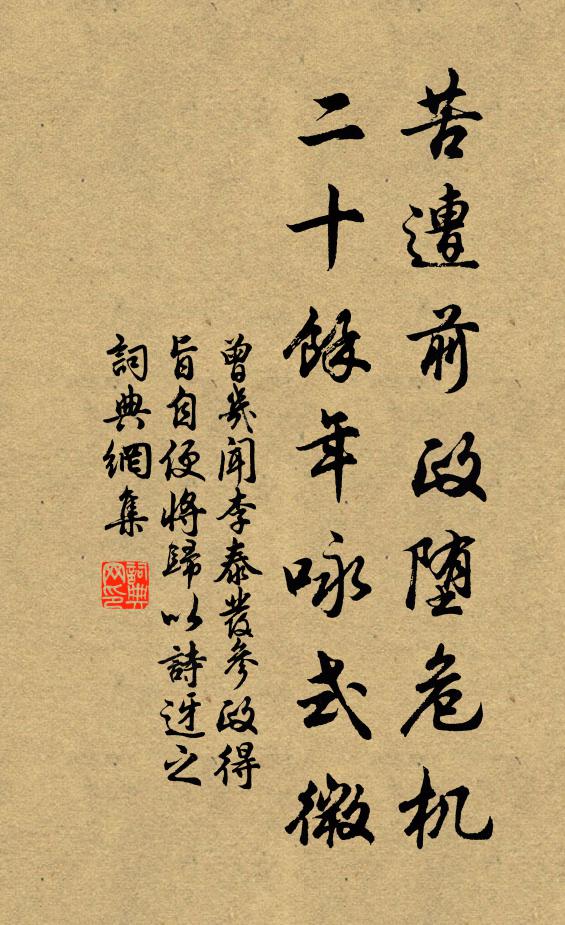 苦遭前政堕危机
二十餘年咏式微
曾几聞李泰發參政得
旨自便將歸以詩迓之
詞典網集
詞典网印